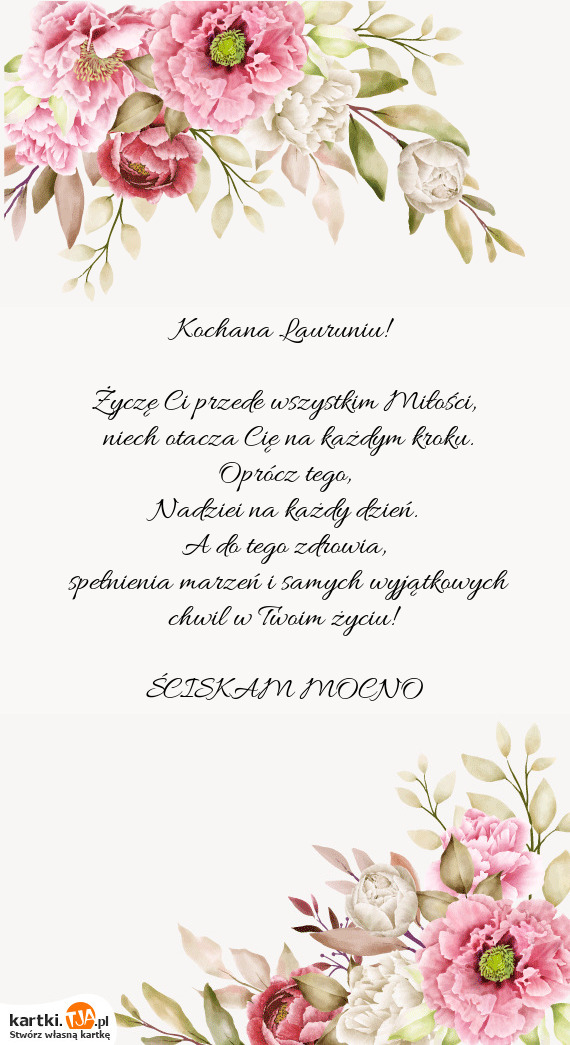 Kochana Lauruniu!
Życzę Ci przede wszystkim Miłości,
niech otacza Cię na każdym kroku.
Oprócz tego,
Nadziei na każdy dzień.
A do tego zdrowia,
spełnienia marzeń i samych wyjątkowych
chwil w Twoim życiu!
ŚCISKAM MOCNO
kartki.TJA.pl
Stwórz własną kartkę